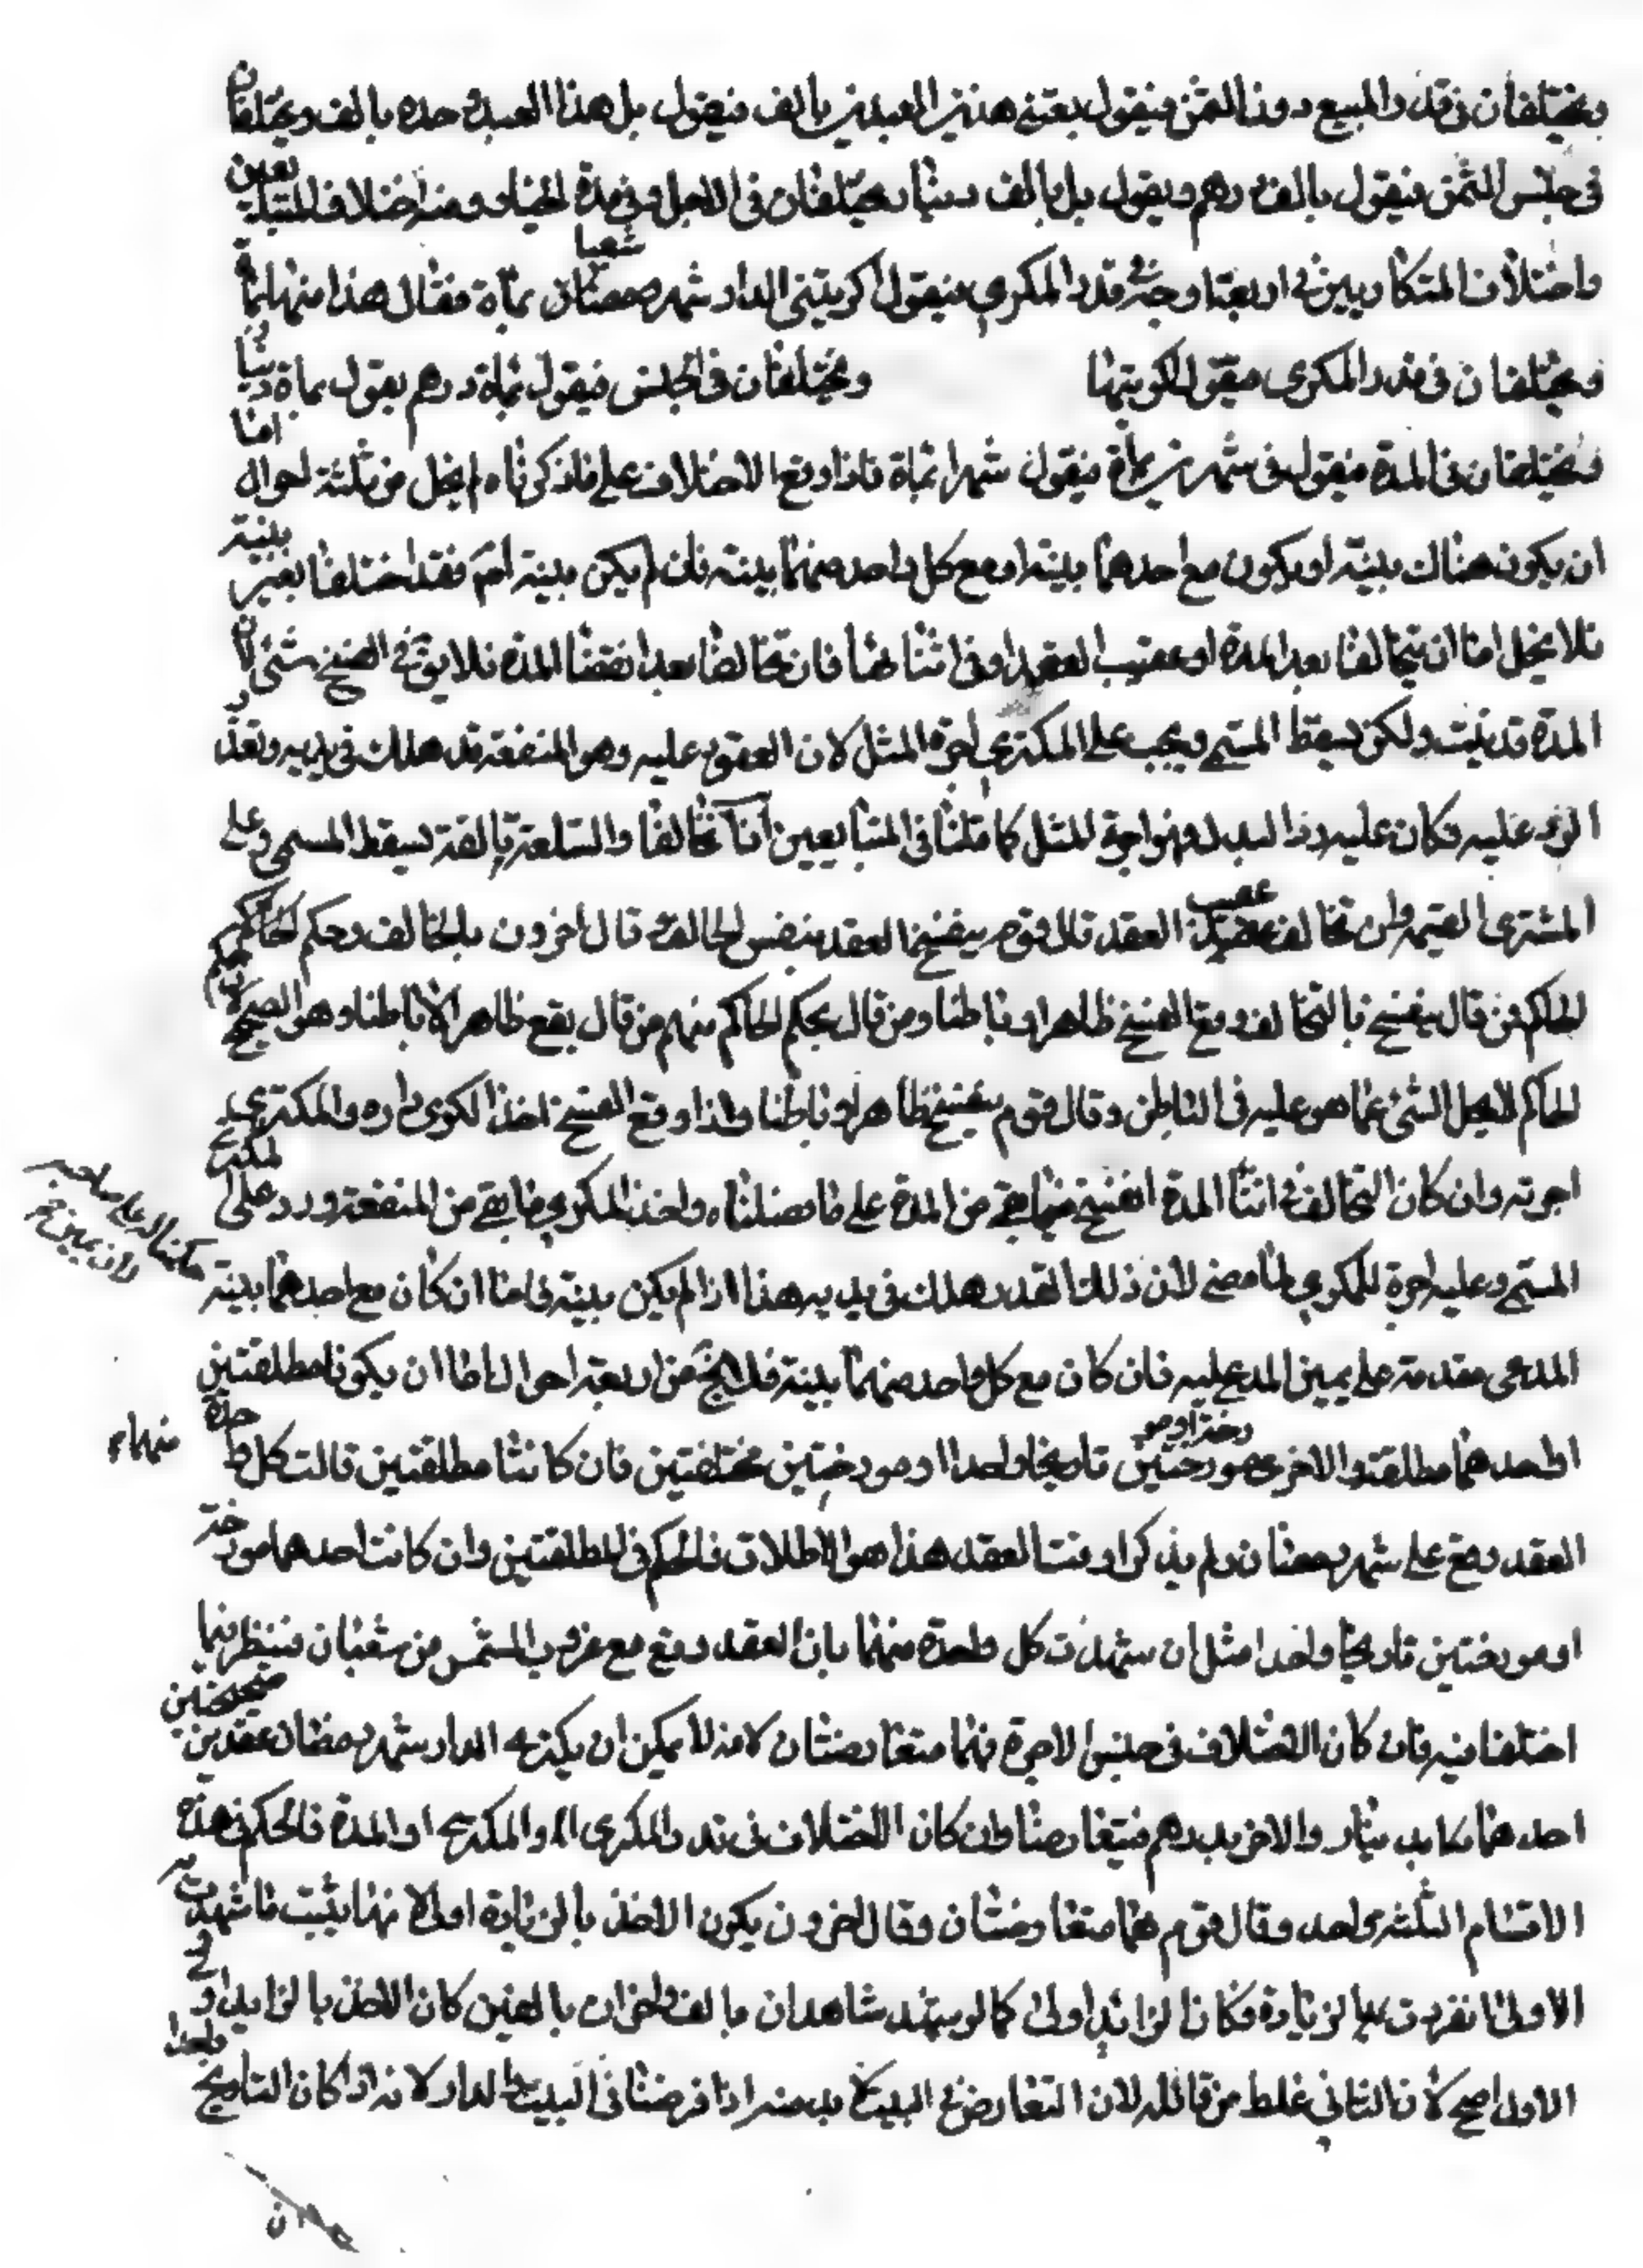 ويختلفان في قدر المبيع دون الثمن فيقول بعتني هذين العبدين بالف فيقول بل هذا العبد وحده بالف ويختلفان
في جنس الثمن فيقول بالف درهم ويقول بل بالف دينار يختلفان في الاجل وفي مدة الخيار ومنه اختلاف المتبايعين
واختلاف المتكاريين في اربعة اوجه في قدر المكري فيقول اكريتني الدار شهر رمضان بمأة فقال هذا منها بمأة شعبا
ويختلفان في قدر المكري فيقول اكريتها ويختلفان في الجنس فيقول بمأة درهم يقول بمأة دينا
ويختلفان في المدة فيقول في شهرين بمأة فيقول شهرا بمأة فاذا وقع الاختلاف على ما ذكرناه لم يخل من ثلثة احوال اما
ان يكون هناك بينة او يكون مع احدهما بينة او مع كل واحد منهما بينة فان لم يكن بينة فقد اختلفا بغير بينة
فلا يخل اما ان يتحالفا بعد المدة او عقيب العقد او في اثنائها فان تحالفا بعد انقضا المدة فلا يقع في الفسخ شئ لان
المدة قد ولكن يسقط المسمى ويجب على المكتري اجرة المثل لان المعقود عليه وهو المنفعة قد هلك في يديه وتعذر
الرد عليه فكان عليه رد البدل وهو اجرة المثل كما قلنا في المتبايعين اذا تحالفا والسلعة تالفة يسقط المسمى وعلى
المشتري القيمة وان تحالفا عقيب العقد قال قوم ينفسخ العقد بنفس التحالف قال اخرون بالتحالف وحكم الحاكم
الحاكم فمن قال ينفسخ بالتحالف وقع الفسخ ظاهرا وباطنا ومن قال بحكم الحاكم منهم من قال يقع ظاهرا لا باطنا وهو الصحيح
الحاكم لا يحيل الشئ عما هو عليه في الباطن وقال قوم ينفسخ ظاهرا وباطنا واذا وقع الفسخ اخذ المكري داره والمكتري
اجرته وان كان التحالف في اثنا المدة انفسخ فيما بقي من المدة على ما فصلناه واخذ المكري ما بقي من المنفعة ورد على المكتري
المسمى وعليه اجرة للمكري لما مضى لان ذلك القدر هلك في يديه هذا اذا لم يكن بينة فاما ان كان مع احدهما بينة
المدعي مقدمة على يمين المدعى عليه فان كان مع كل واحد منهما بينة فلا يخ من اربعة احوال اما ان يكونا مطلقتين
احدهما مطلقة والاخرى مورختين تاريخا واحدا او مورختين مختلفتين فان كانتا مطلقتين قالت كل واحدة منهما
العقد وقع على شهر رمضان ولم يذكرا وقت العقد هذا هو الاطلاق فالحكم في المطلقتين وان كانت احدهما مورخة
او مورختين تاريخا واحدا مثل ان شهدت كل واحدة منهما بان العقد وقع مع غروب الشمس من شعبان فننظر فيما
اختلفا فيه فان كان الاختلاف في جنس الاجرة فهما متعارضتان لانه لا يمكن ان يكريه الدار شهر رمضان عقدين صحيحين
احدهما بدينار والاخر بدرهم فيتعارضا وان كان الاختلاف في قدر المكري او المدة فالحكم في هذه
الاقسام الثلثة واحد وقال قوم هما متعارضتان وقال اخرون يكون الاخذ بالزيادة اولى لانها يثبت ما شهدت به
الاولى انفردت على الزيادة فكان الزايد اولى كما لو شهد شاهدان بالف واخران بالفين كان الاخذ بالزايد اولى
الاول اصح لان الثاني غلط من قائله لان التعارض في البيت منه اذا فرضنا في البيت الدار لانه اذا كان التاريخ واحدا